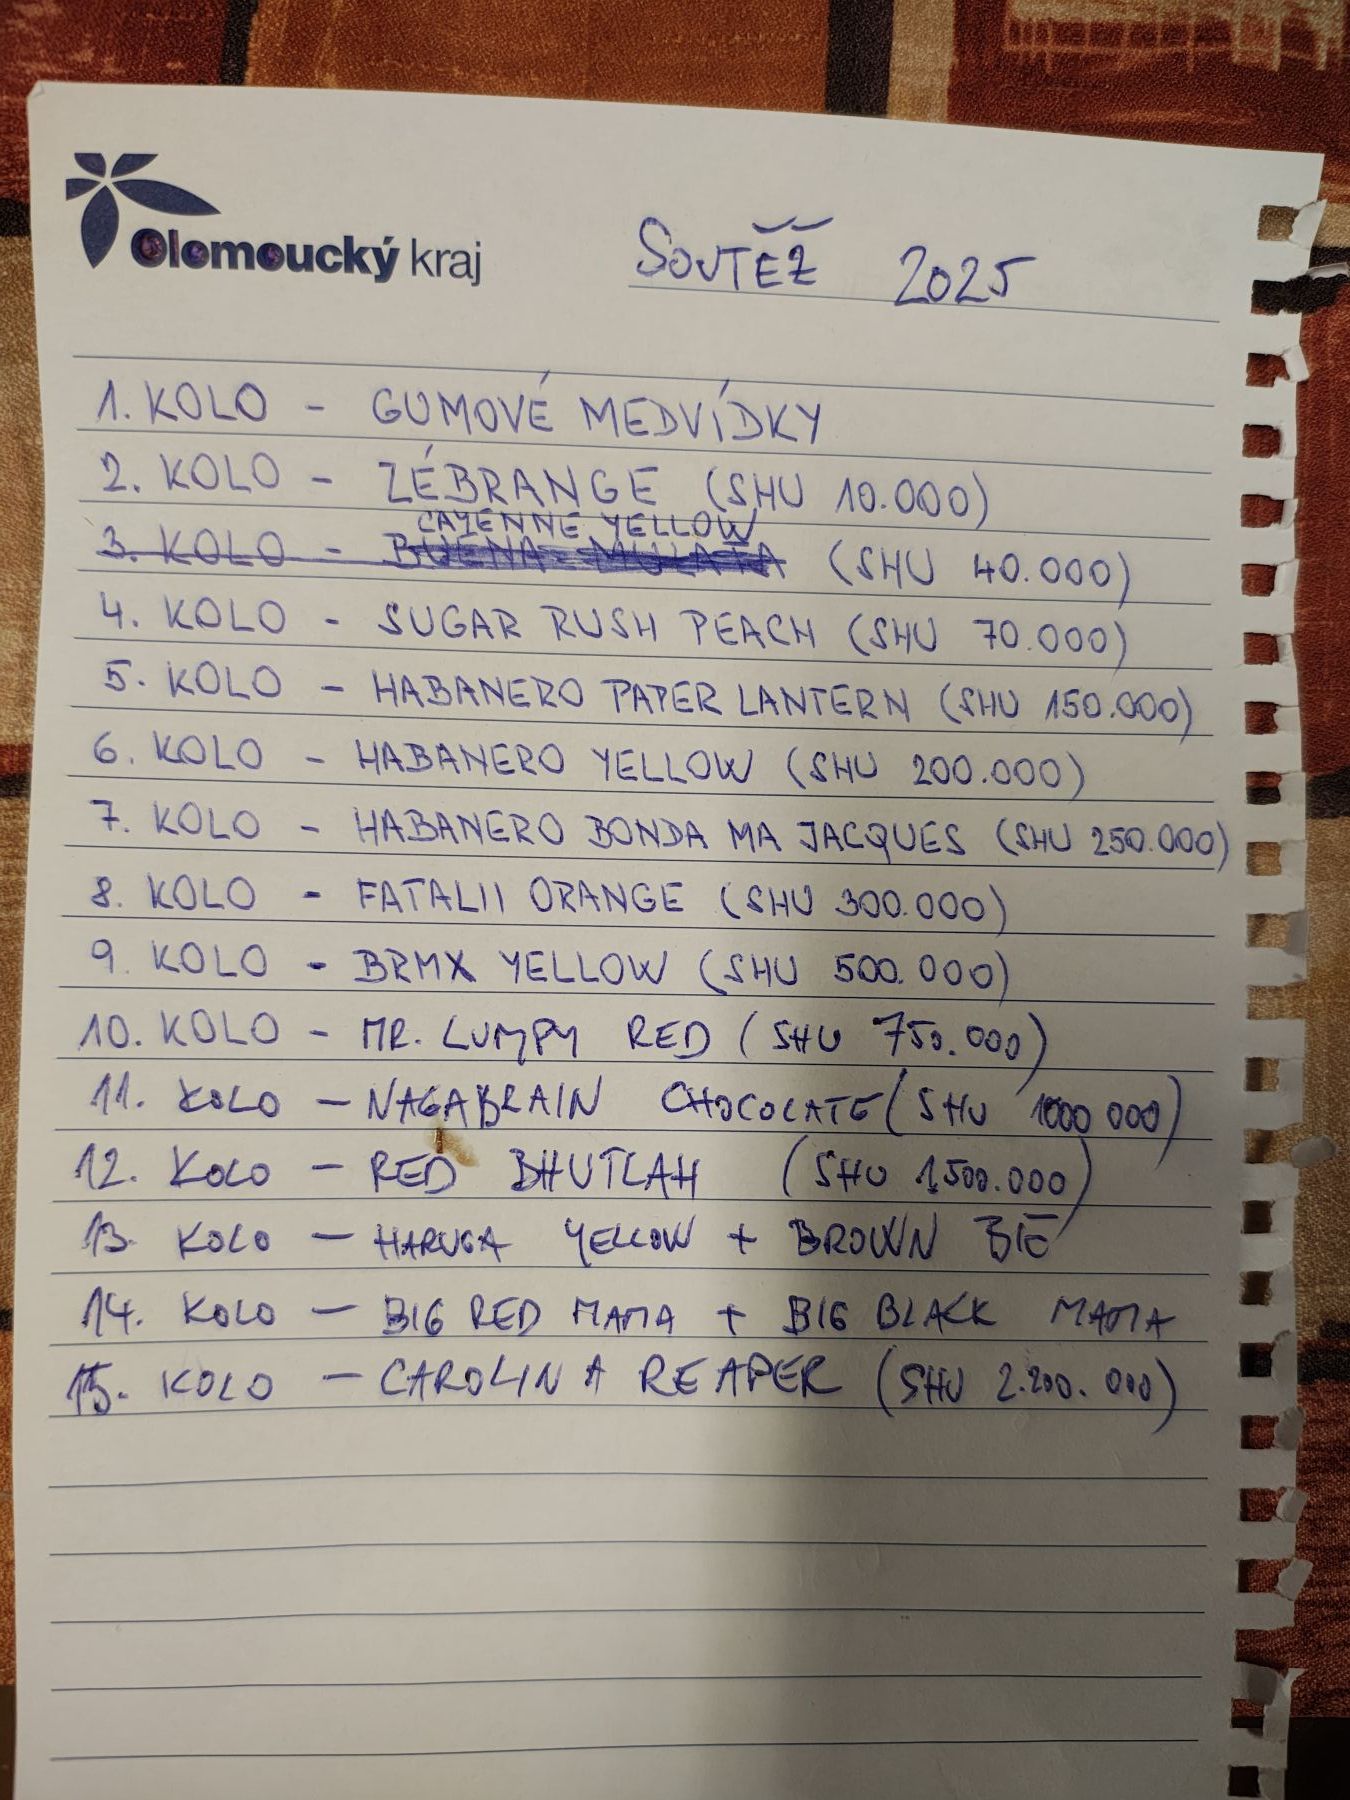 Olomoucký kraj
SOUTĚŽ 2025
1. KOLO - GUMOVÉ MEDVÍDKY
2. KOLO - ZÉBRANGE (SHU 10.000)
CAYENNE YELLOW
3. KOLO - BUENA MULATA (SHU 40.000)
4. KOLO - SUGAR RUSH PEACH (SHU 70.000)
5. KOLO - HABANERO PAPER LANTERN (SHU 150.000)
6. KOLO - HABANERO YELLOW (SHU 200.000)
7. KOLO - HABANERO BONDA MA JACQUES (SHU 250.000)
8. KOLO - FATALII ORANGE (SHU 300.000)
9. KOLO - BRMX YELLOW (SHU 500.000)
10. KOLO - MR. LUMPY RED (SHU 750.000)
11. KOLO - NAGABRAIN CHOCOLATE (SHU 1000 000)
12. KOLO - RED BHUTLAH (SHU 1.500.000)
13. KOLO - HARUGA YELLOW + BROWN
14. KOLO - BIG RED MAMA + BIG BLACK MAMA
15. KOLO - CAROLINA REAPER (SHU 2.200.000)